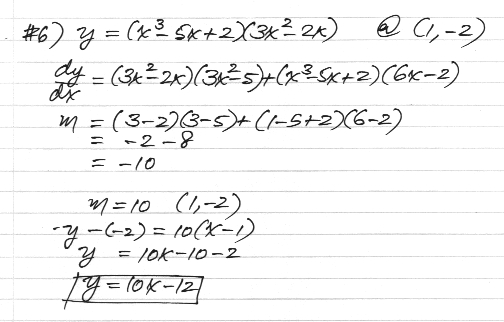 #6) y = (x³ - 5x + 2)(3x² - 2x) @ (1, -2)
dy/dx = (3x² - 2x)(3x² - 5) + (x³ - 5x + 2)(6x - 2)
m = (3 - 2)(3 - 5) + (1 - 5 + 2)(6 - 2)
= -2 - 8
= -10
m = 10 (1, -2)
y - (-2) = 10(x - 1)
y = 10x - 10 - 2
y = 10x - 12